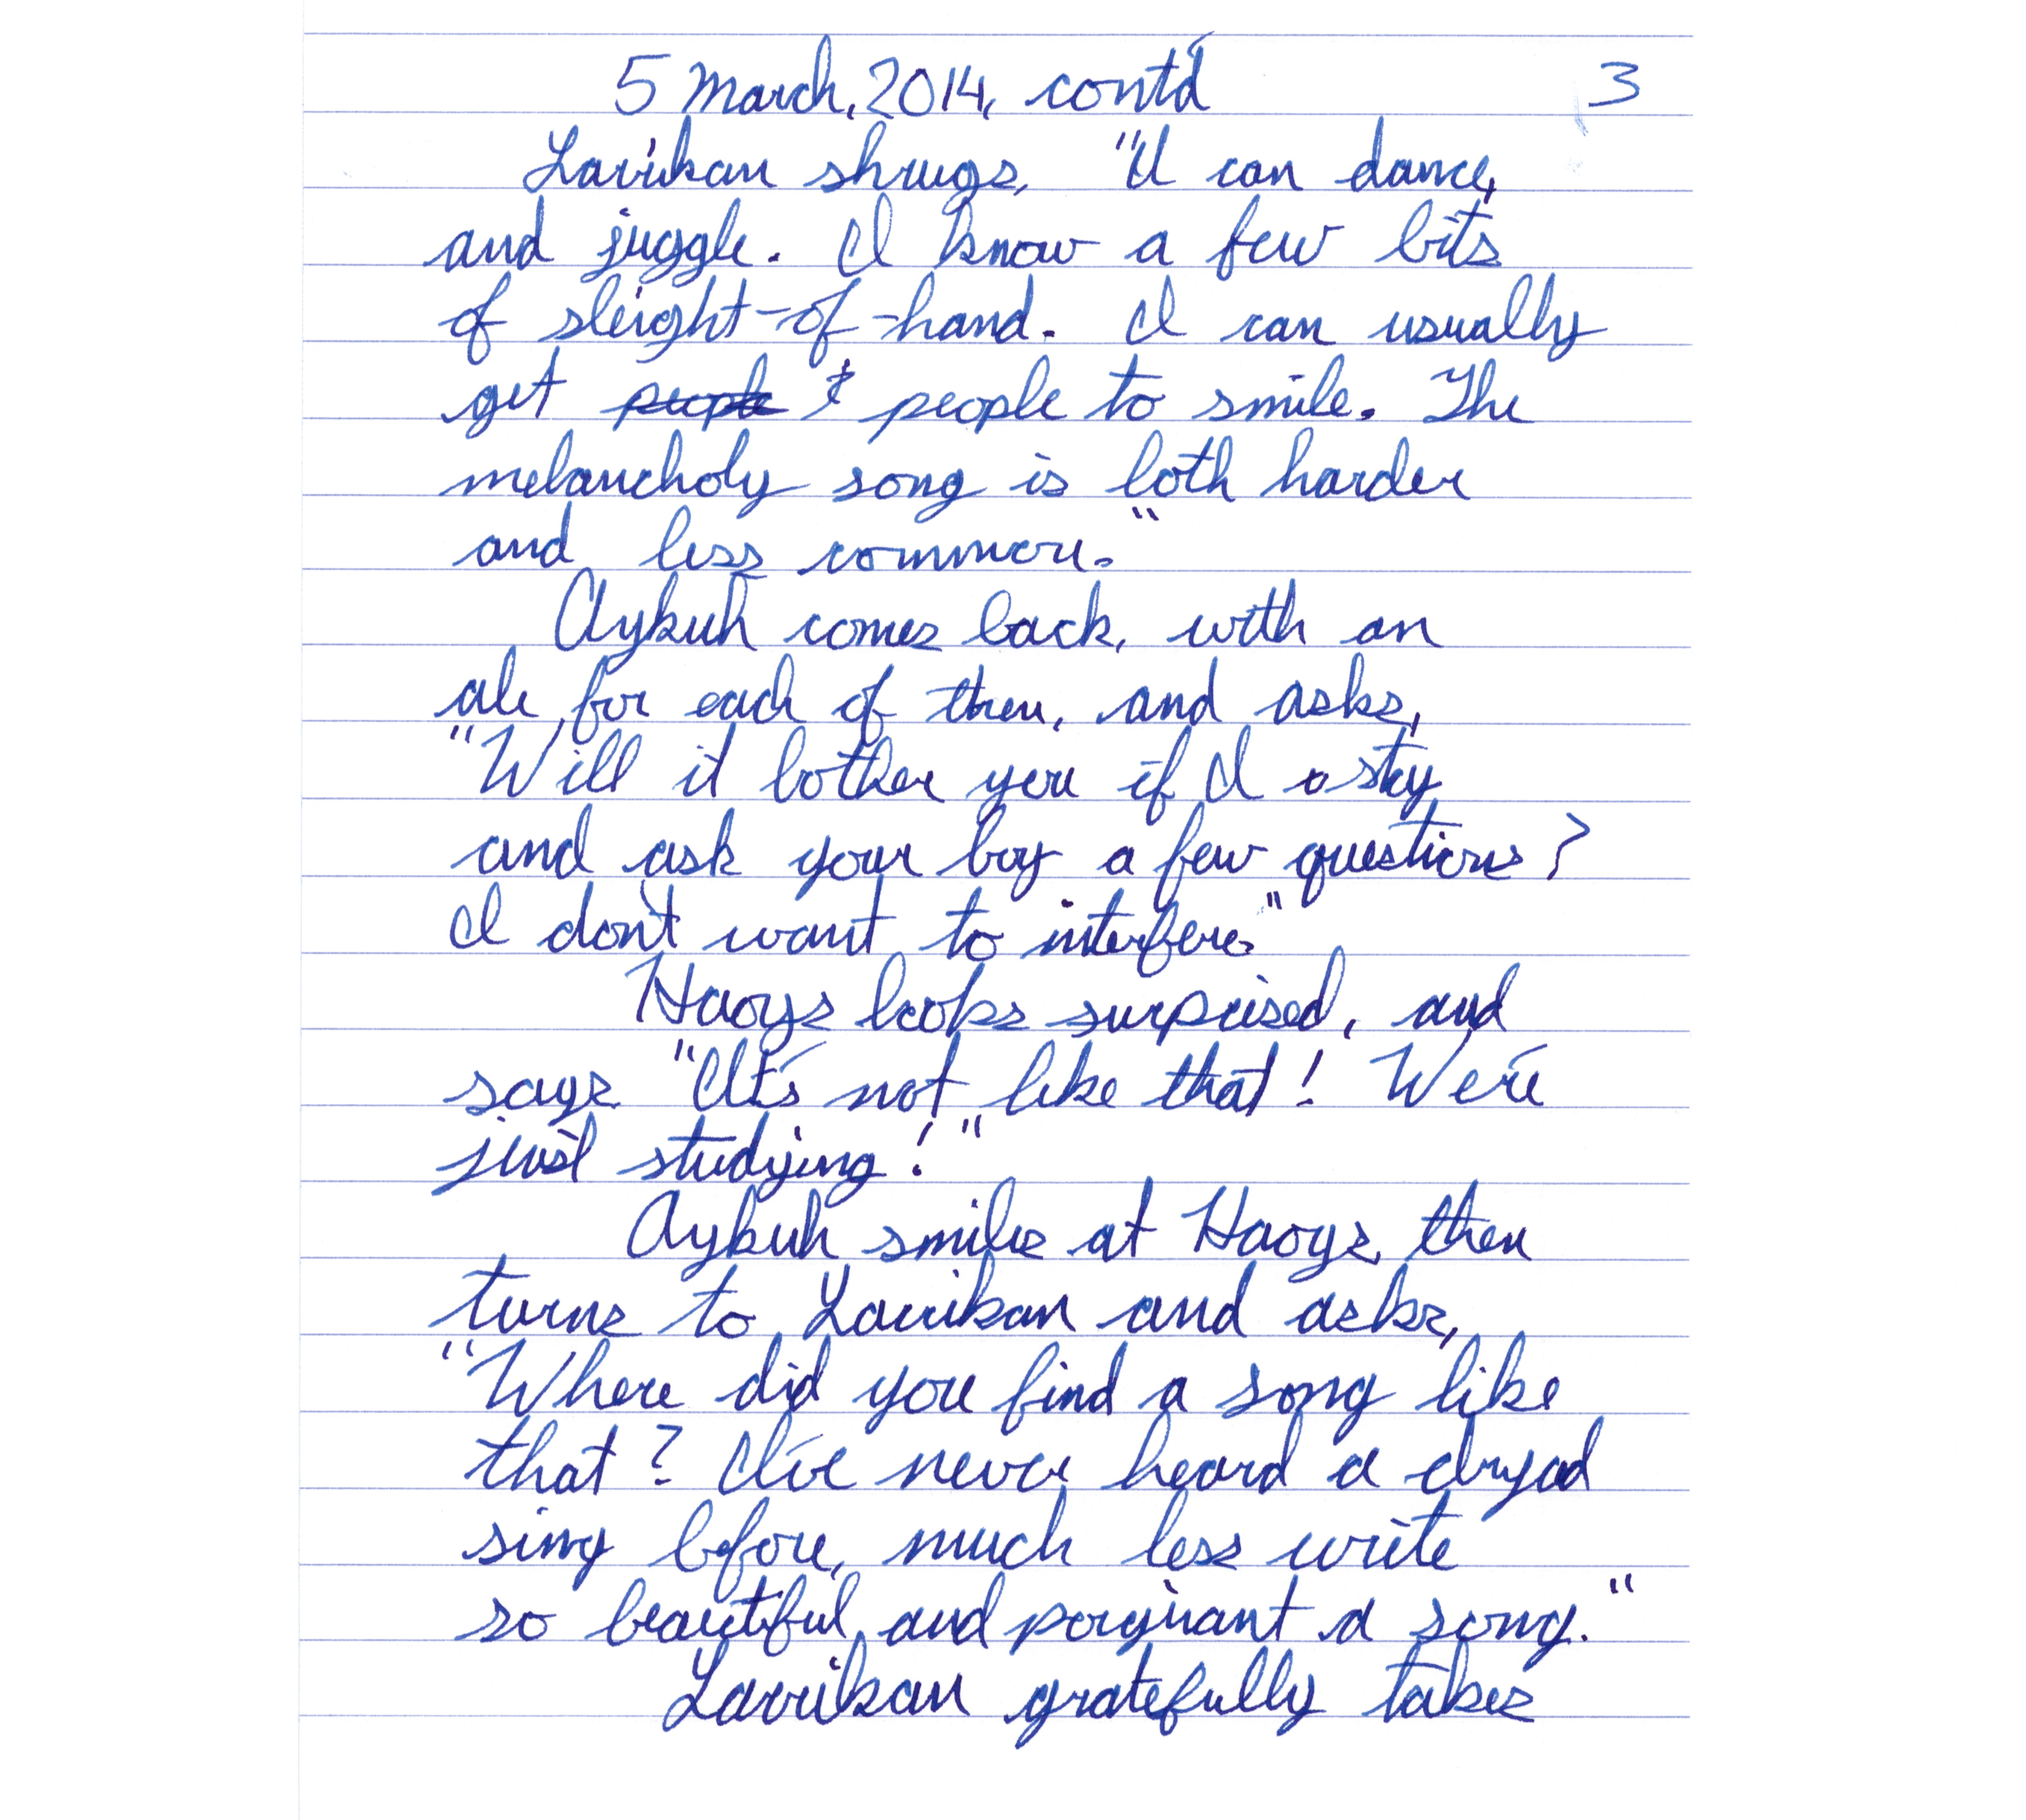 5 March, 2014, cont'd 3
Larrikan shrugs, "I can dance,
and juggle. I know a few bits
of sleight-of-hand. I can usually
get people to smile. The
melancholy song is both harder
and less common."
Aykuh comes back, with an
ale for each of them, and asks,
"Will it bother you if I stay
and ask your boy a few questions?
I don't want to interfere."
Haoys looks surprised, and
says "It's not like that! We're
just studying!"
Aykuh smiles at Haoys, then
turns to Larrikan and asks,
"Where did you find a song like
that? I've never heard a dryad
sing before, much less write
so beautiful and poignant a song."
Larrikan gratefully takes